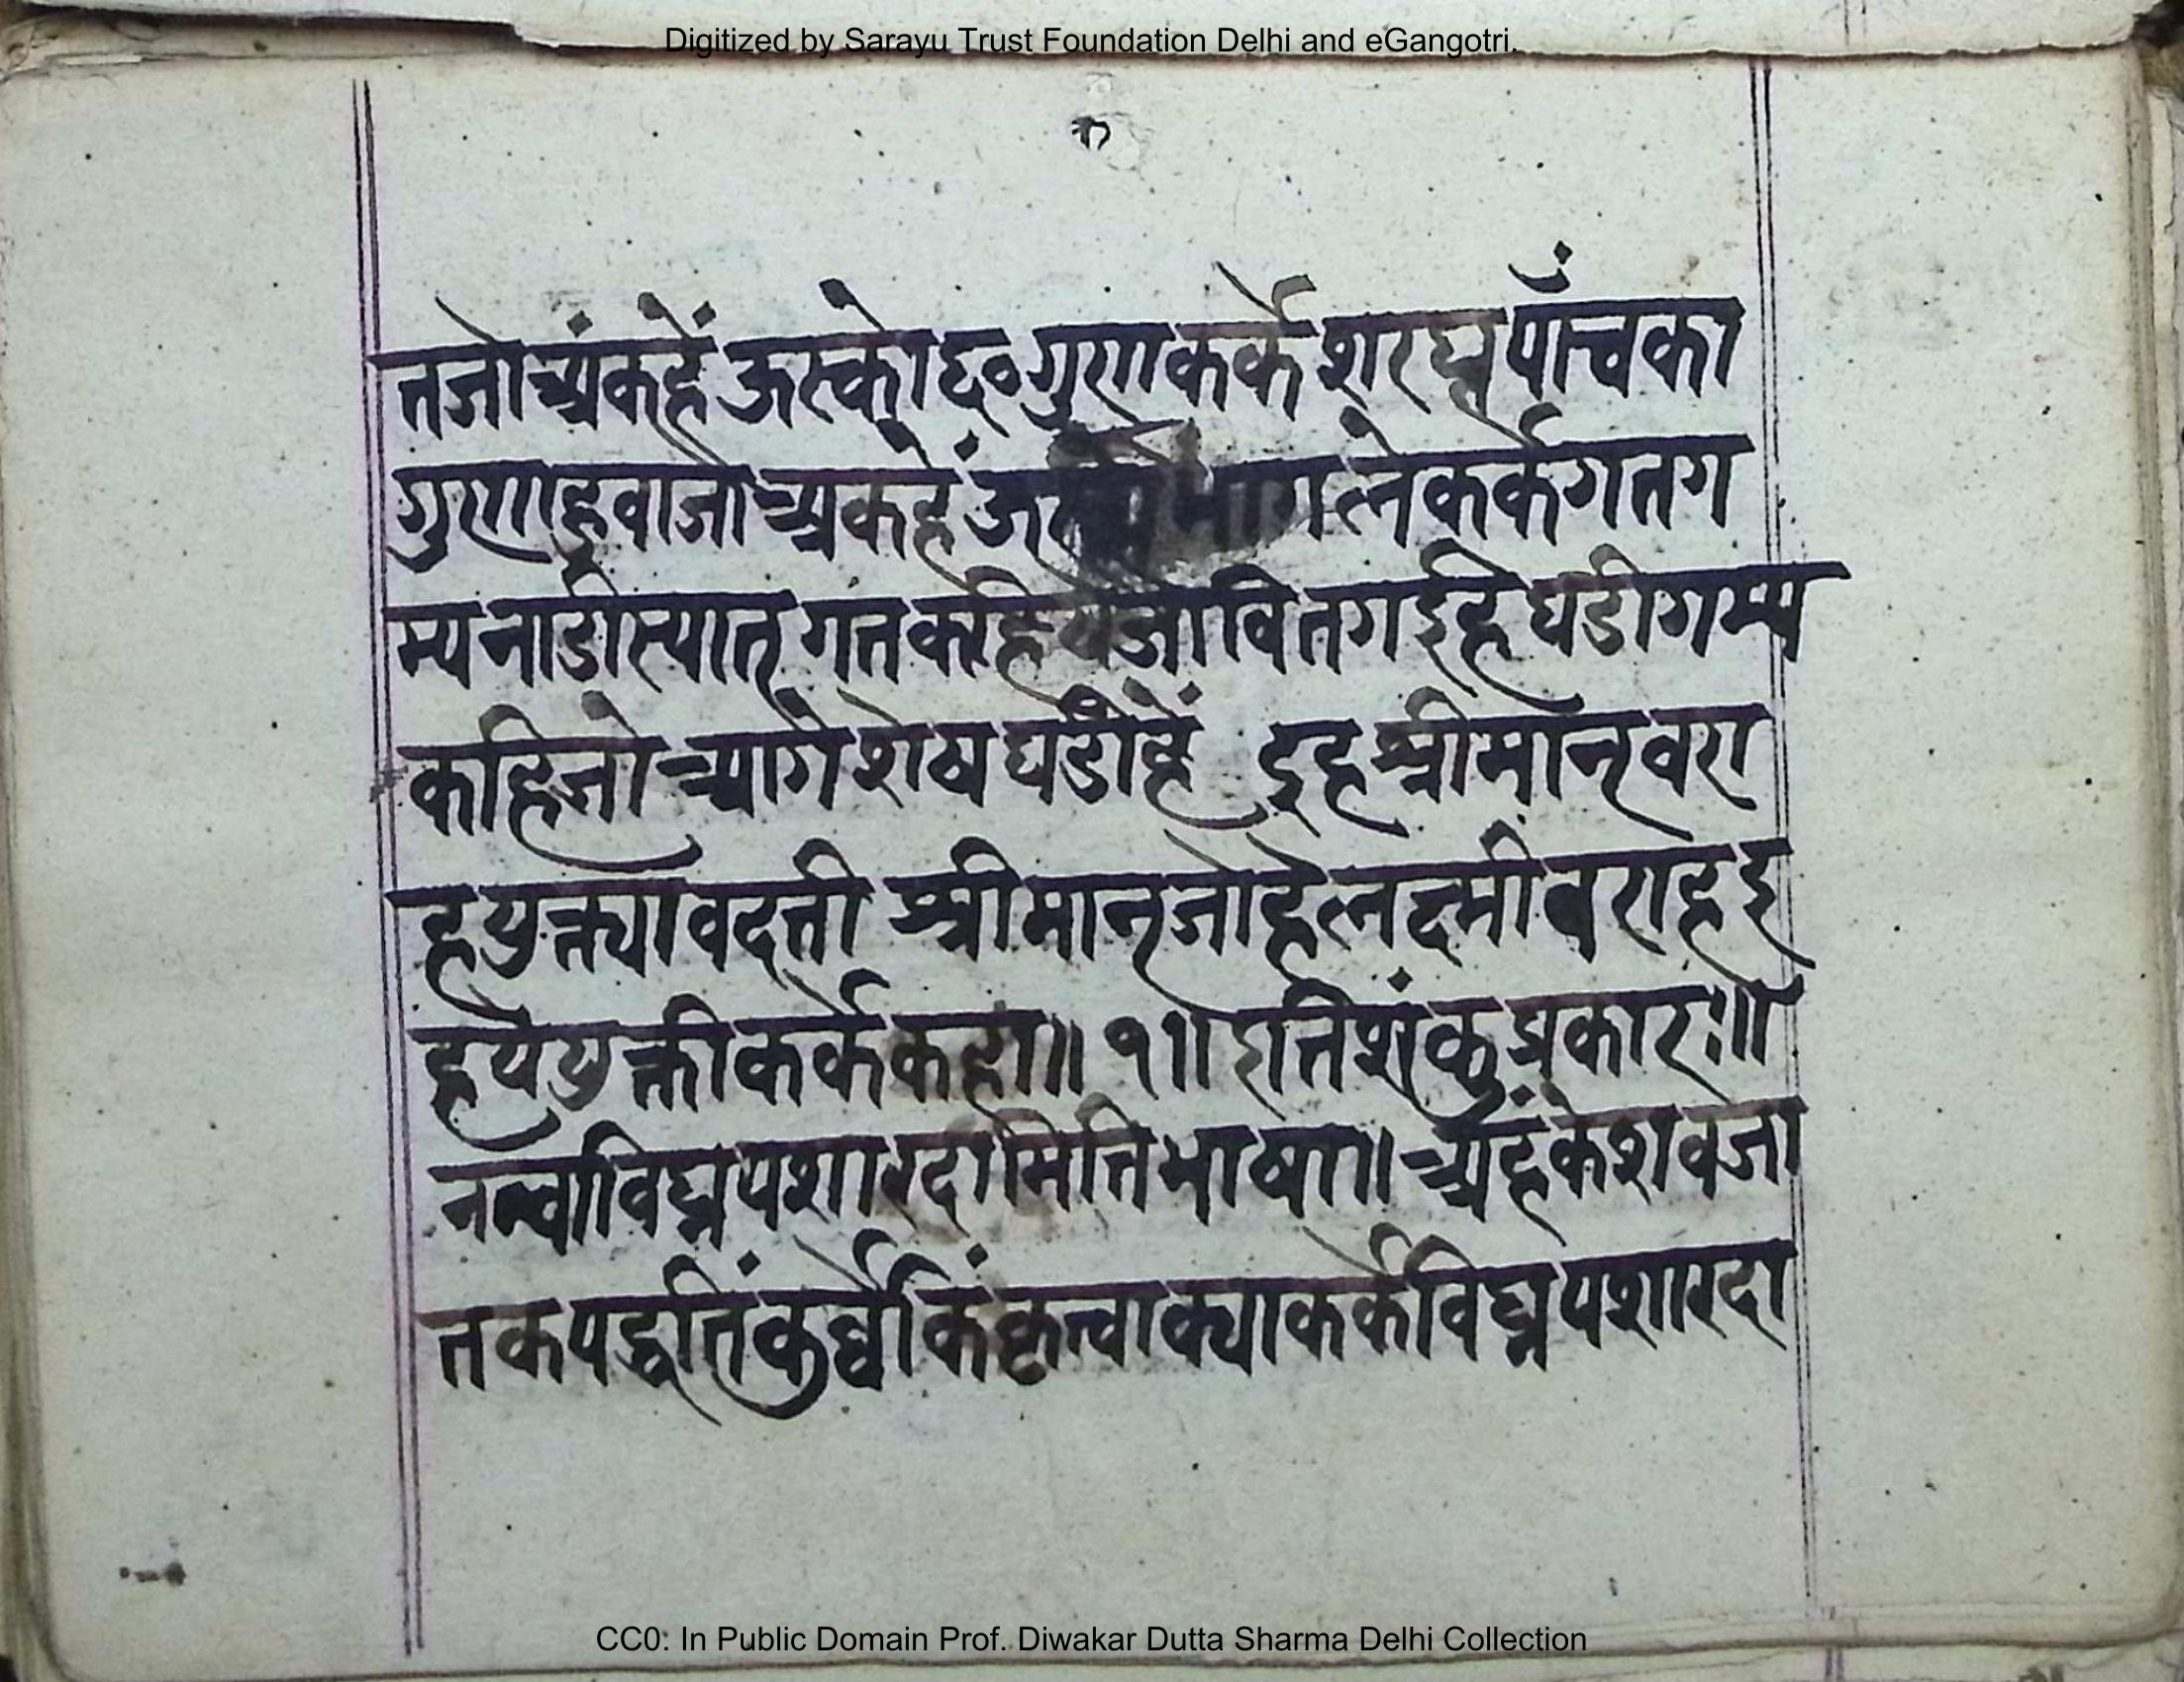 Digitized by Sarayu Trust Foundation Delhi and eGangotri.
तजो अंकहें ऊस्को द्द॰ गुणाकर्के शरघ्न पाँचका
गुणाहुवाजो अंकहें लेकर्के गतग
म्य नाडीस्यात् गतकहि जो वितगईहि घडी गम्य
कहिजो आगे शेष घडीहें इह श्रीमान् वरा
ह युक्त्या वदती श्रीमान् जोहे लक्ष्मी बराह इ
ह ये युक्ती कर्के कहा॥ १॥ इति शंकु प्रकारः॥
नत्वा विघ्नपशारदामिति भाषा॥ अहं केशव जा
तकपद्धतिं कुर्व्वे किं कृत्वा क्या कर्के विघ्नपशारदा
CC0: In Public Domain Prof. Diwakar Dutta Sharma Delhi Collection